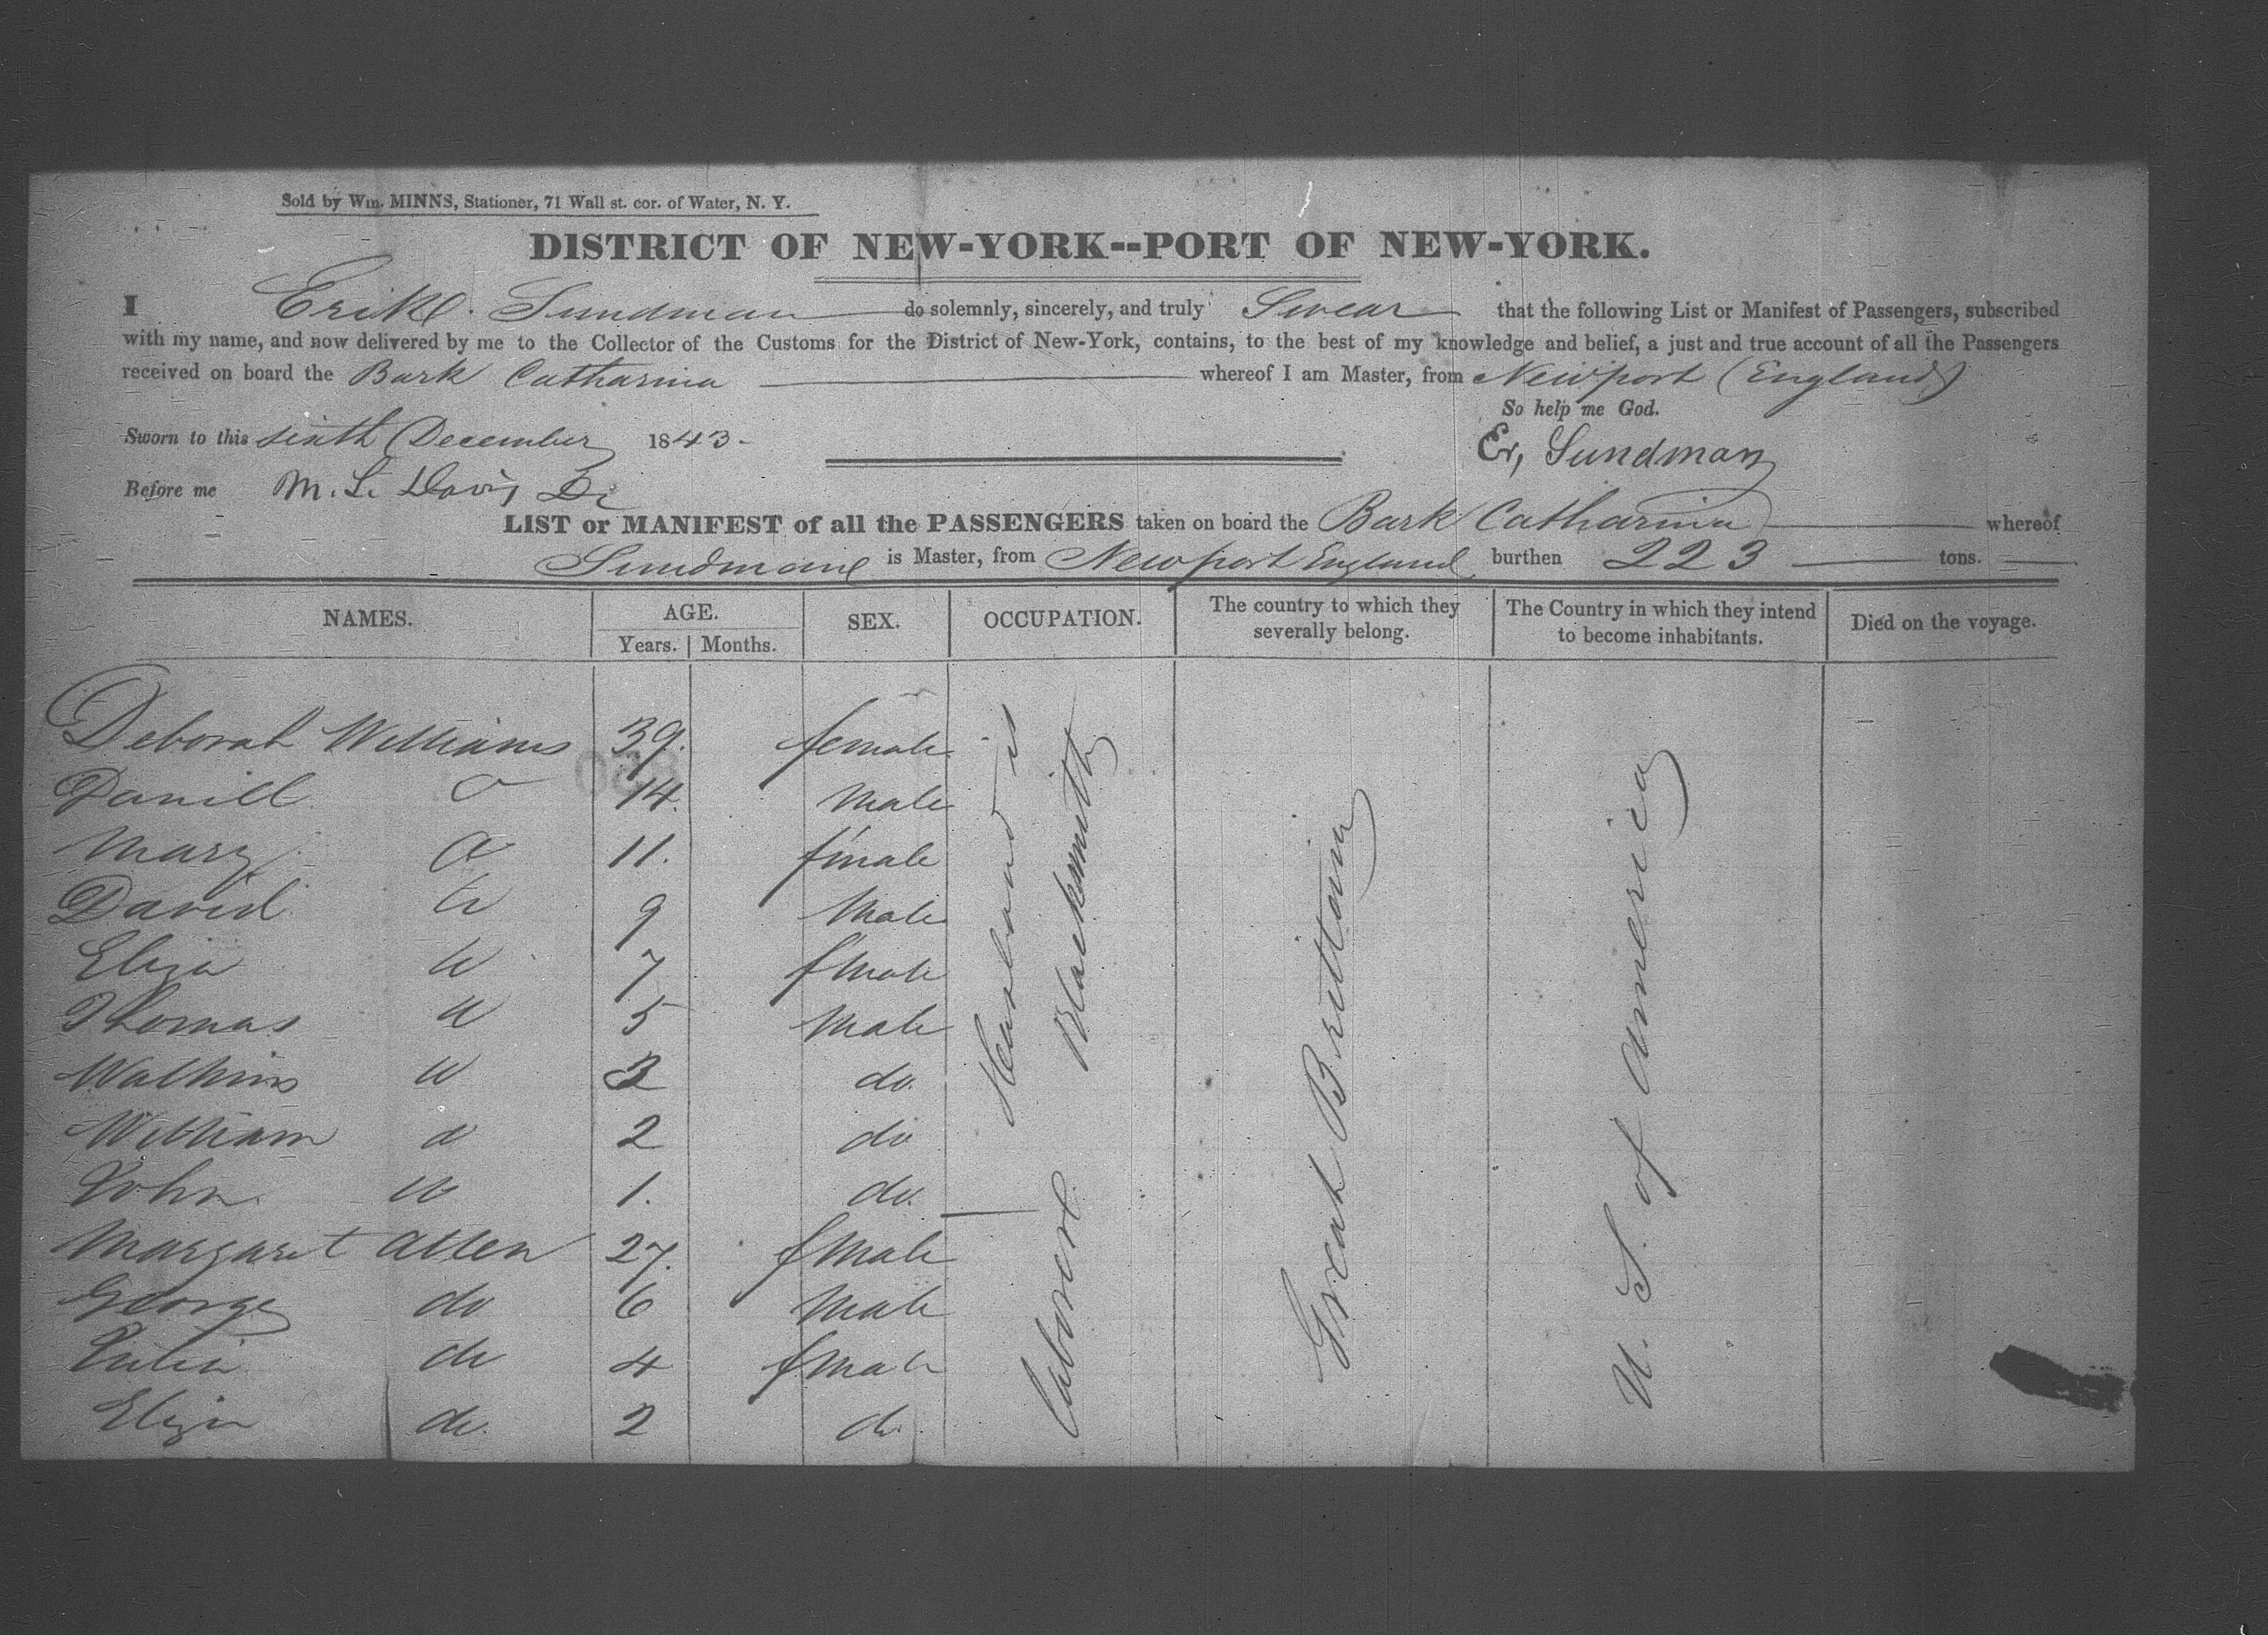 Sold by Wm. MINNS, Stationer, 71 Wall st. cor. of Water, N. Y.
DISTRICT OF NEW-YORK--PORT OF NEW-YORK.
I Erik Sundman do solemnly, sincerely, and truly Swear that the following List or Manifest of Passengers, subscribed
with my name, and now delivered by me to the Collector of the Customs for the District of New-York, contains, to the best of my knowledge and belief, a just and true account of all the Passengers
received on board the Bark Catharina whereof I am Master, from Newport (England)
So help me God.
Sworn to this sixth December 1843-
Er, Sundman
Before me M. L. Davis
LIST or MANIFEST of all the PASSENGERS taken on board the Bark Catharina whereof
Sundman is Master, from Newport England burthen 223 tons.
NAMES. AGE. Years. Months. SEX. OCCUPATION. The country to which they severally belong. The Country in which they intend to become inhabitants. Died on the voyage.
Deborah Williams 39. female
Daniell 14. Male
Mary 11. female
David 9 Male
Eliza 7 fmale
Thomas 5 Male
Watkins 3 do.
William 2 do
John 1. do.
Margaret Allen 27. fmale
George do 6 Male
Julia do 4 fmale
Eliza do. 2 do.
Husband is
Blacksmith
Laborer
Great Brittain
U. S. of America